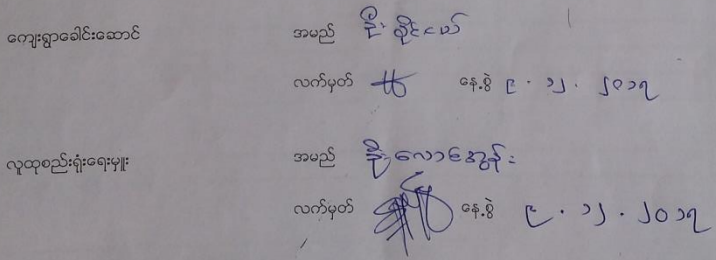 ကျေးရွာခေါင်းဆောင် အမည် ဦး ခိုင်ငယ်
လက်မှတ် နေ့စွဲ ၉ . ၁၂ . ၂၀၁၇
လူထုစည်းရုံးရေးမှူး အမည် ဦး
လက်မှတ် နေ့စွဲ ၉ . ၁၂ . ၂၀၁၇